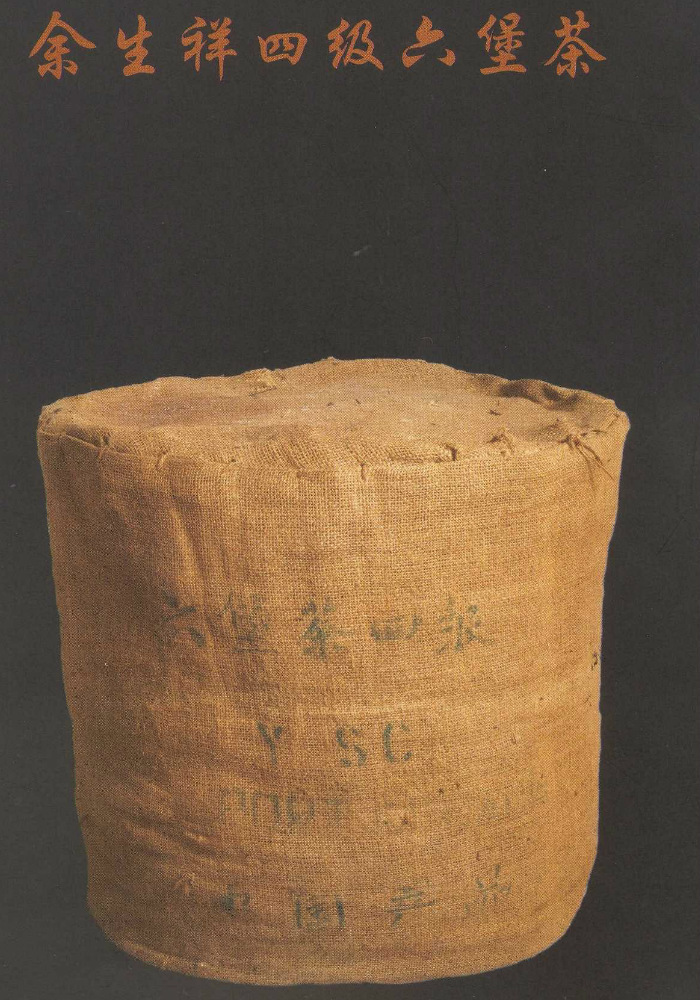 余生祥四级六堡茶
六堡茶四級
Y SC
中国产品